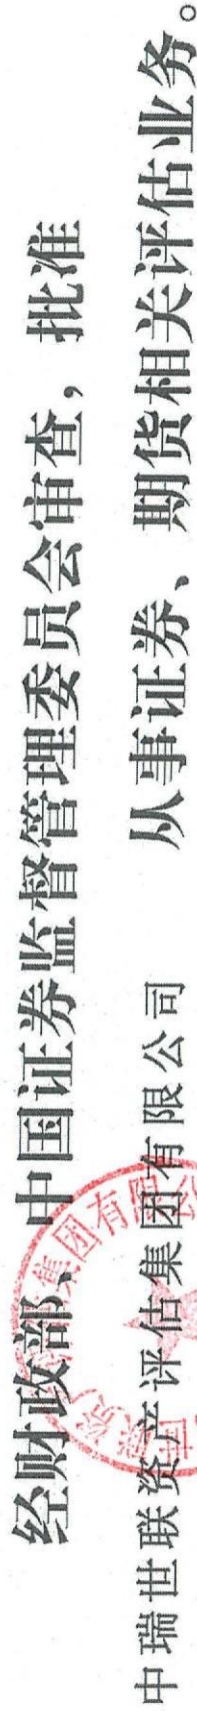 经财政部、中国证券监督管理委员会审查，批准
中瑞世联资产评估集团有限公司 从事证券、期货相关评估业务。